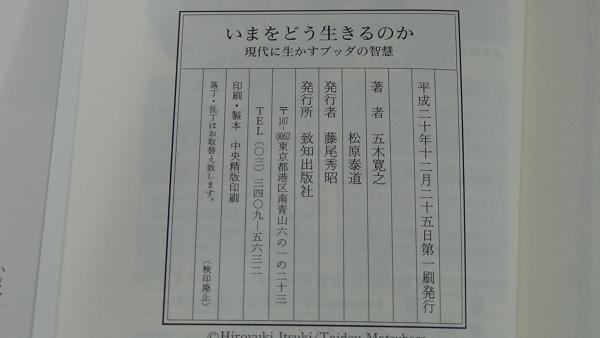 いまをどう生きるのか
現代に生かすブッダの智慧
平成二十年十二月二十五日第一刷発行
著者 五木寛之
松原泰道
発行者 藤尾秀昭
発行所 致知出版社
〒107-0062東京都港区南青山六の一の二十三
TEL(〇三)三四〇九―五六三二
印刷・製本 中央精版印刷
落丁・乱丁はお取替え致します。
(検印廃止)
©Hiroyuki Itsuki/Taidou Matsubara